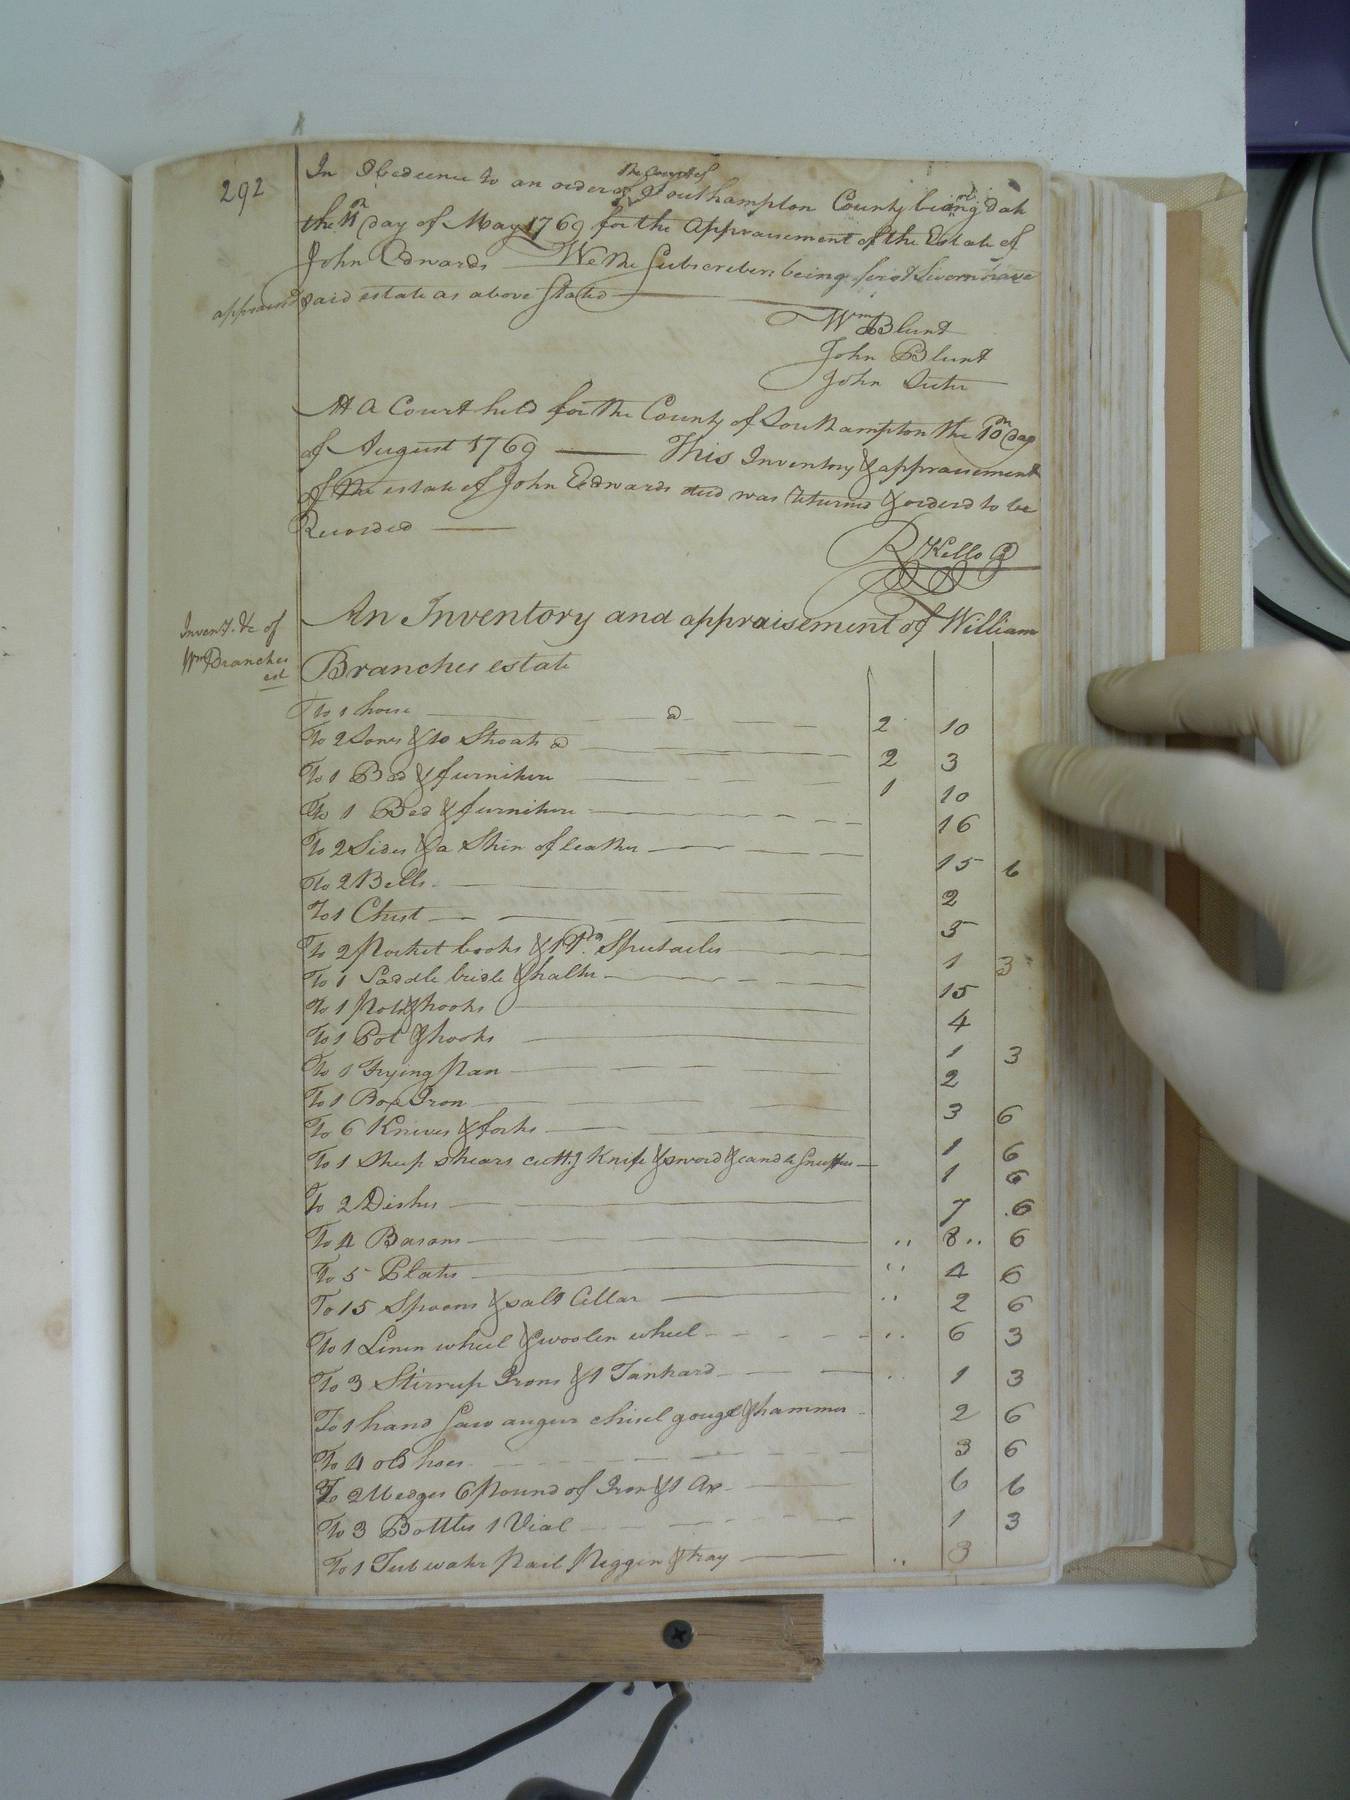 292
In Obedience to an order of the Court of Southampton County being dat
the 11th day of May 1769 for the Appraisement of the Estate of
John Edwards We the Subscribers being first Sworn have
appraised said estate as above stated
Wm Blunt
John Blunt
John Suter
At a Court held for the County of Southampton the 10th day
of August 1769 This Inventory & appraisement
of the estate of John Edwards decd was returned & orderd to be
Recorded
R Kello
Invent. &c of
Wm Branches
est
An Inventory and appraisement of William
Branches estate
To 1 horse @ 2 10
To 2 Sows & 10 Shoats @ 2 3
To 1 Bed & furniture 1 10
To 1 Bed & furniture 16
To 2 Sides & a Skin of leather 15 6
To 2 Bells 2
To 1 Chest 5
To 2 Pocket books & 1 Pr Spectacles 1 3
To 1 Saddle bridle & halter 15
To 1 Pot & hooks 4
To 1 Pot & hooks 1 3
To 1 Frying Pan 2
To 1 Box Iron 3 6
To 6 Knives & forks 1 6
To 1 Sheep shears cuttg Knife & sword & candle snuffers 1 6
To 2 Dishes 7 6
To 4 Basons 8 6
To 5 Plates 4 6
To 15 Spoons & salt Cellar 2 6
To 1 Linen wheel & woolen wheel 6 3
To 3 Stirrup Irons & 1 Tankard 1 3
To 1 hand saw augur chisel gouge & hammer 2 6
To 4 old hoes 3 6
To 2 Wedges 6 Pound of Iron & 1 Ax 6 6
To 3 Bottles 1 Vial 1 3
To 1 Tub water Pail Piggen & tray 3